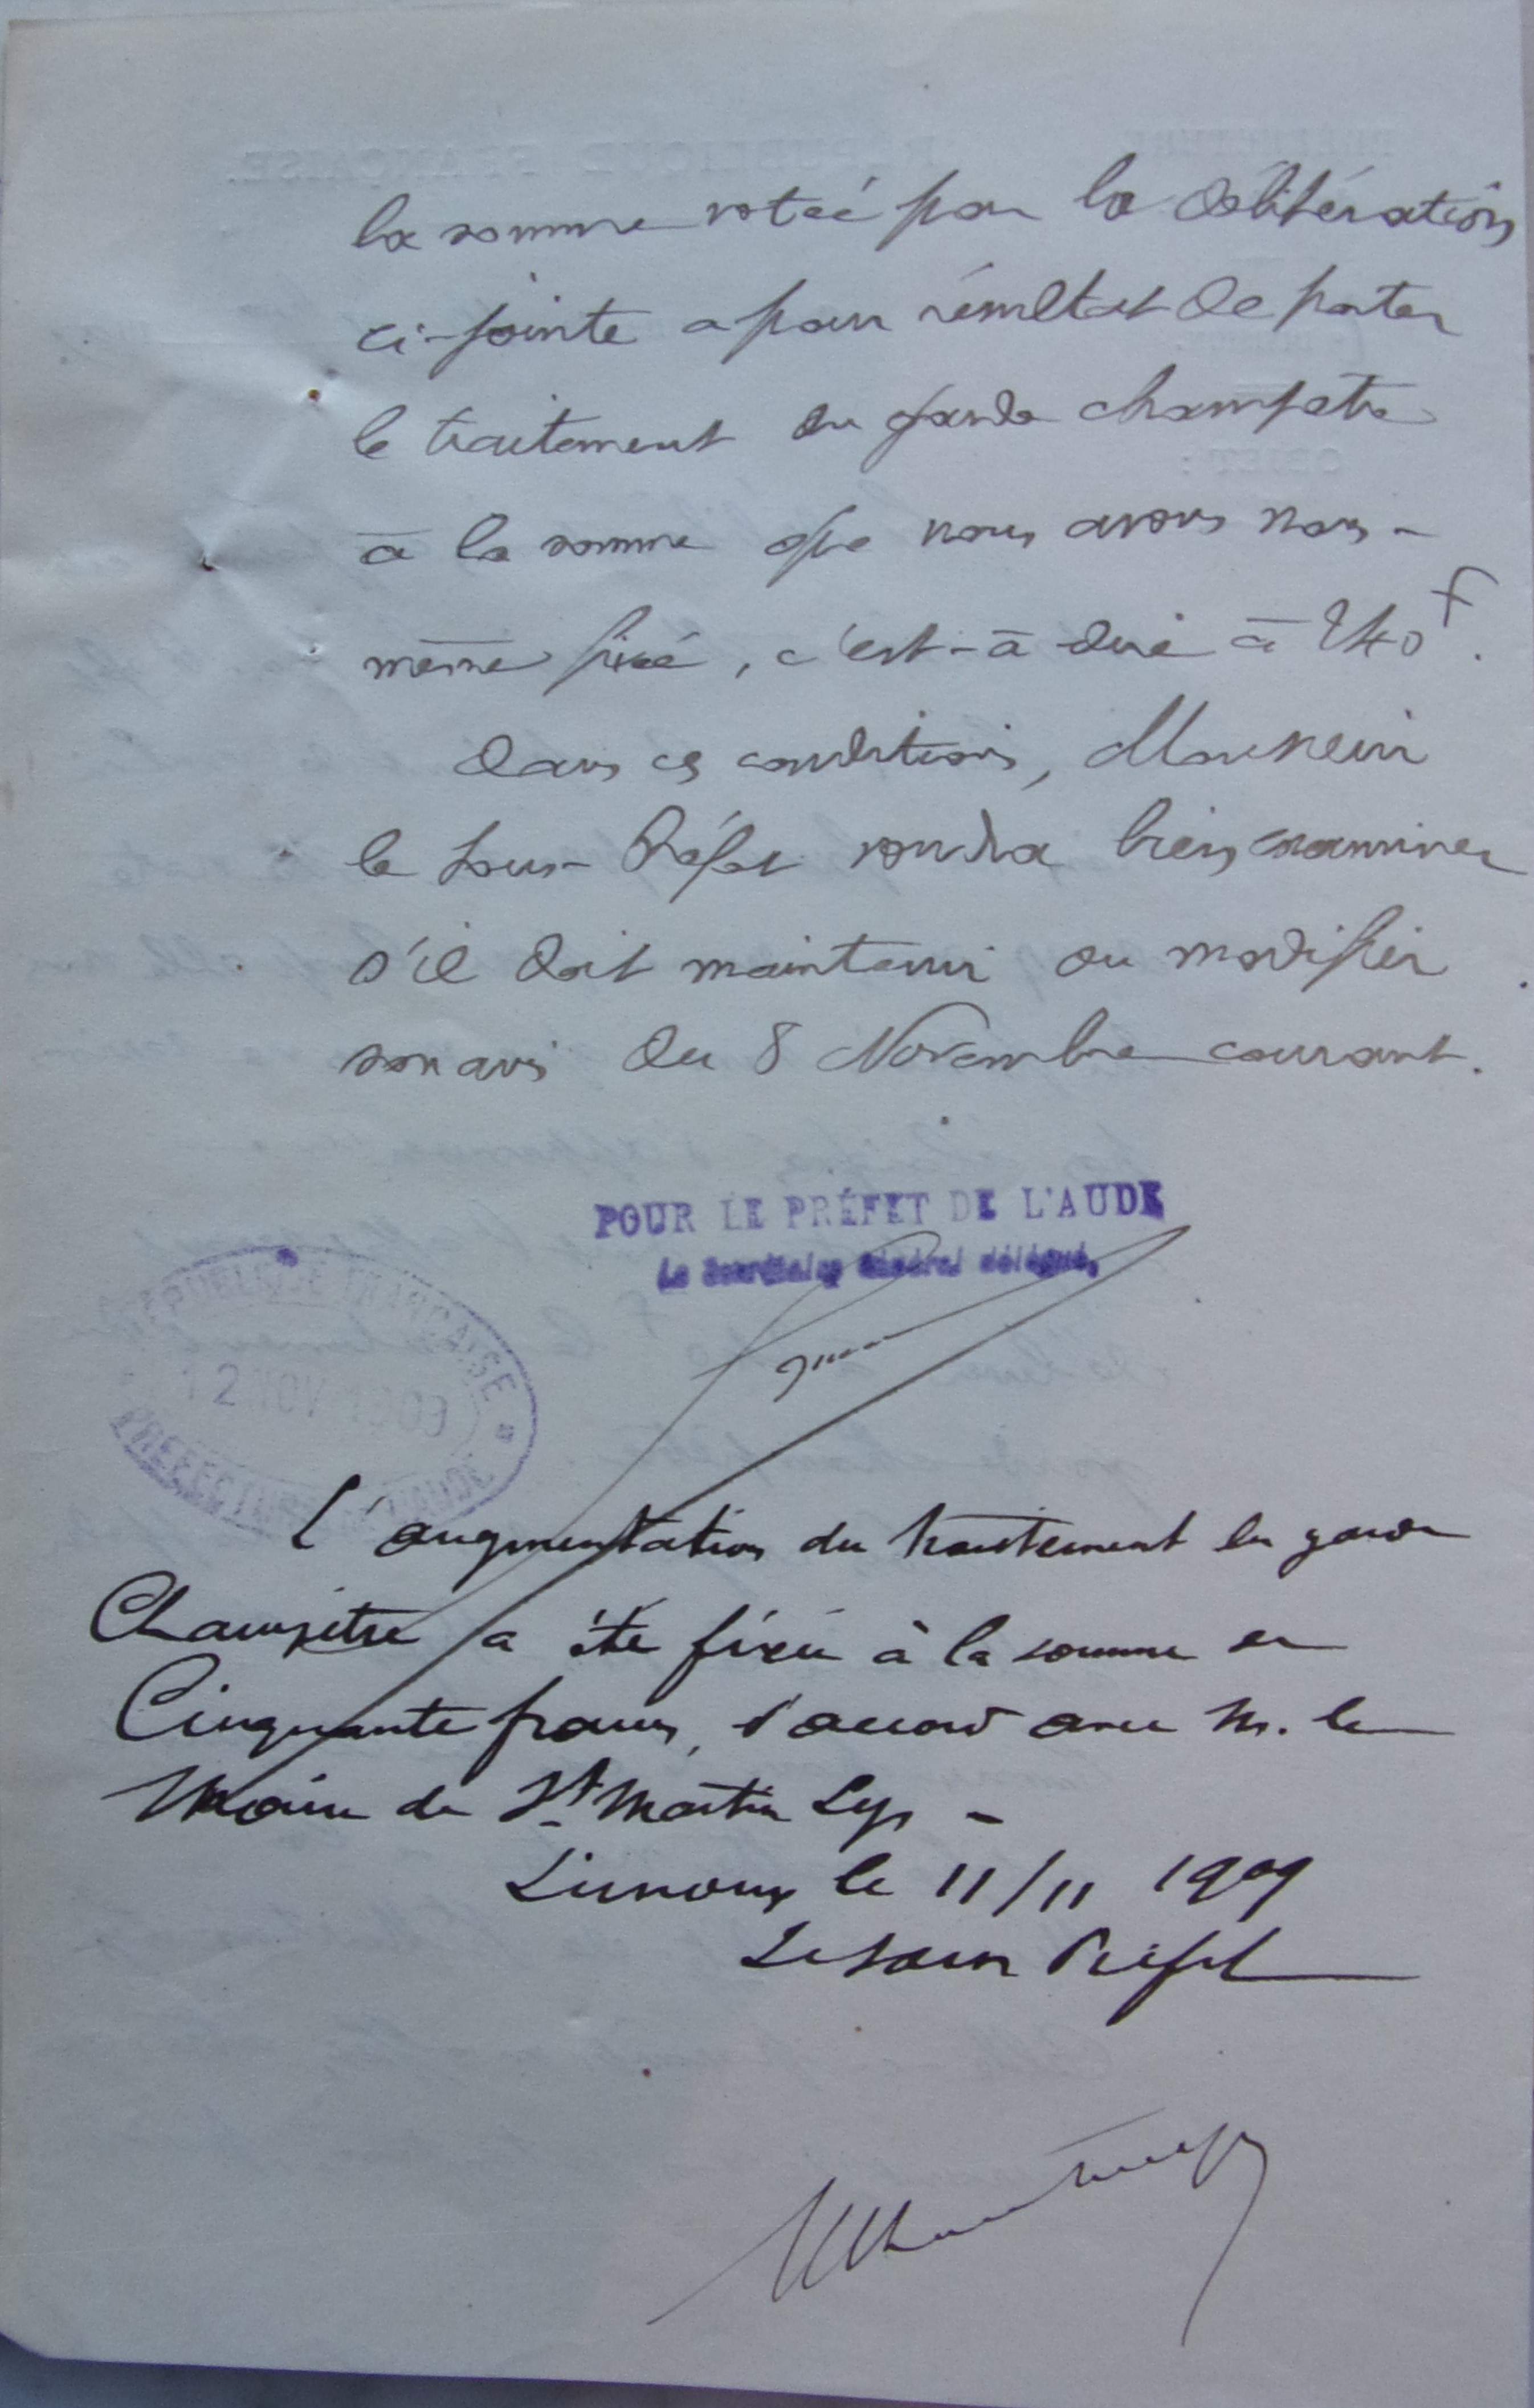 la somme votée par la délibération
ci-jointe a pour résultat de porter
le traitement du garde champêtre
à la somme que nous avons nous-
même fixé, c'est-à-dire à 240 F.
Dans ces conditions, Monsieur
le Sous-Préfet voudra bien examiner
s'il doit maintenir ou modifier
son avis du 8 Novembre courant.
POUR LE PRÉFET DE L'AUDE
Le Secrétaire Général délégué,
RÉPUBLIQUE FRANÇAISE
12 NOV 1909
PREFECTURE AUDE
L'augmentation du traitement du garde
Champêtre a été fixée à la somme de
Cinquante francs, d'accord avec M. le
Maire de St Martin Lys -
Limoux le 11/11 1909
Le Sous Préfet